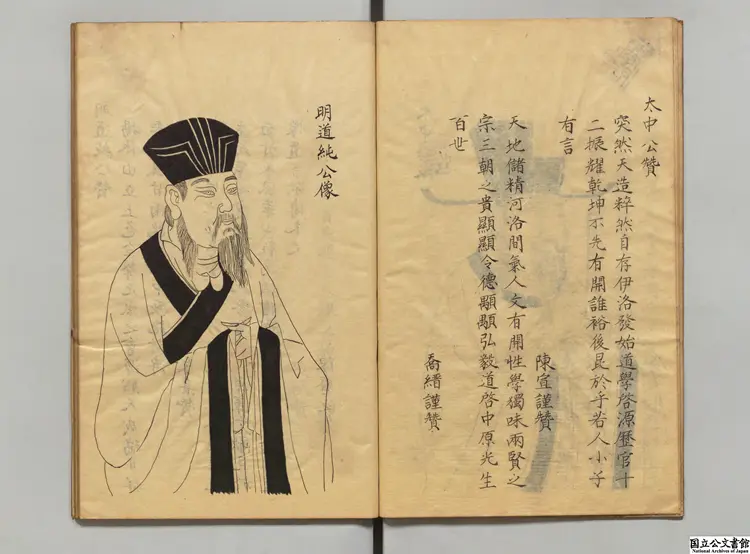 太中公贊
突然天造粹然自存伊洛發始道學啓源歷官十
二振耀乾坤不先有開誰裕後昆於乎若人小子
有言
陳宣謹贊
天地儲精河洛間氣人文有開性學獨味兩賢之
宗三朝之貴顯顯令德顒顒弘毅道啓中原光生
百世
喬縉謹贊
明道純公像
国立公文書館
National Archives of Japan